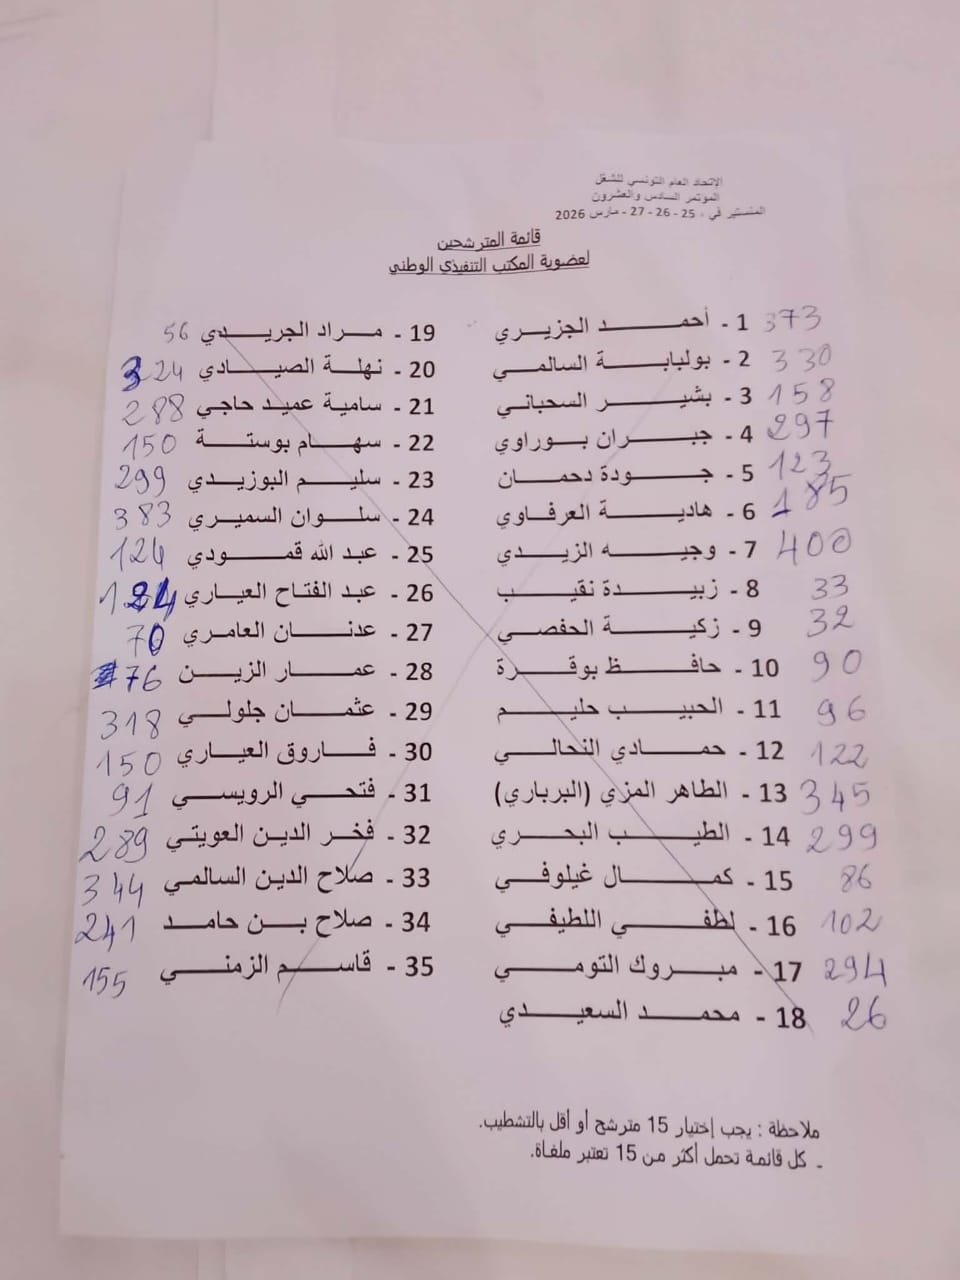 الإتحاد العام التونسي للشغل
المؤتمر السادس والعشرون
المنستير في ، 25 - 26 - 27 - مارس 2026
قائمة المترشحين
لعضوية المكتب التنفيذي الوطني
1 - أحمد الجزيري 373
2 - بولبابة السالمي 330
3 - بشير السحباني 158
4 - جبران بوراوي 297
5 - جودة دحمان 123
6 - هادية العرفاوي 185
7 - وجيه الزيدي 400
8 - زبيدة نقيب 33
9 - زكية الحفصي 32
10 - حافظ بوقرة 90
11 - الحبيب حليم 96
12 - حمادي النحالي 122
13 - الطاهر المزي (البرباري) 345
14 - الطيب البحري 299
15 - كمال غيلوفي 86
16 - لطفي اللطيفي 102
17 - مبروك التومي 294
18 - محمد السعيدي 26
19 - مراد الجريدي 56
20 - نهلة الصيادي 324
21 - سامية عميد حاجي 288
22 - سهام بوستة 150
23 - سليم البوزيدي 299
24 - سلوان السميري 383
25 - عبد الله قمودي 124
26 - عبد الفتاح العياري
27 - عدنان العامري 70
28 - عمار الزين 76
29 - عثمان جلولي 318
30 - فاروق العياري 150
31 - فتحي الرويسي 91
32 - فخر الدين العويتي 289
33 - صلاح الدين السالمي 344
34 - صلاح بن حامد 241
35 - قاسم الزمني 155
ملاحظة : يجب إختيار 15 مترشح أو أقل بالتشطيب.
- كل قائمة تحمل أكثر من 15 تعتبر ملغاة.